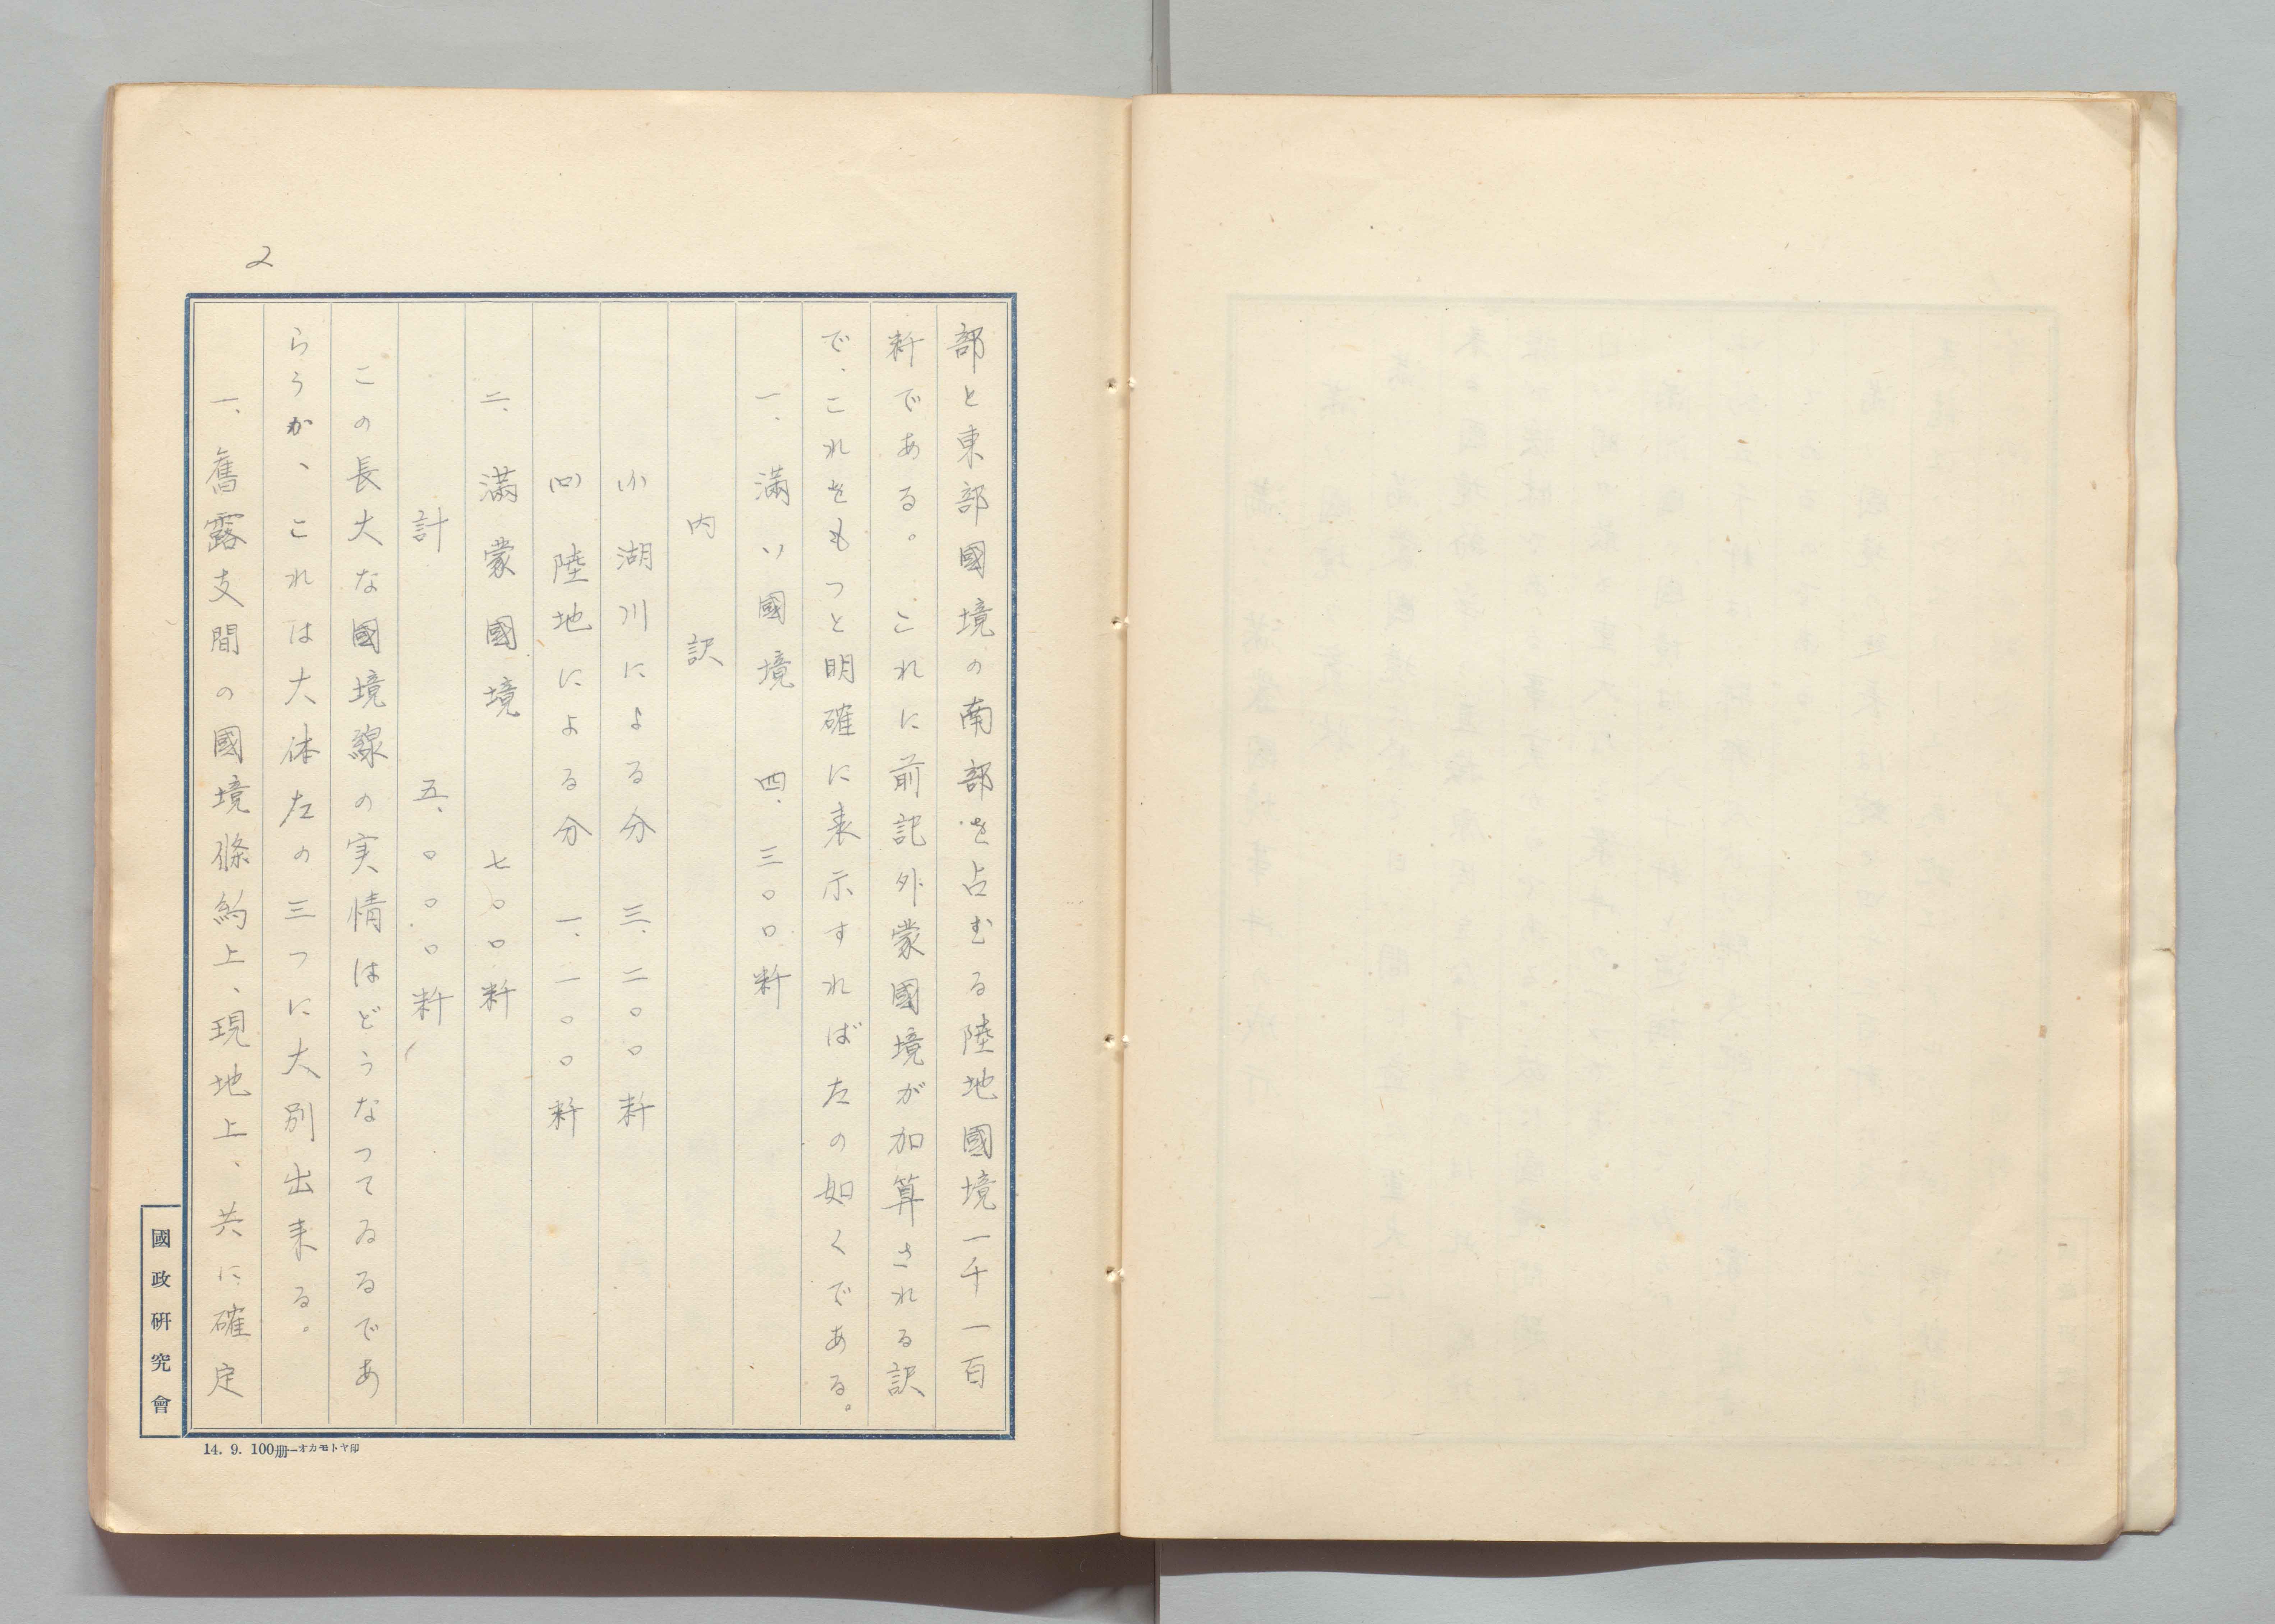 2
部と東部國境の南部を占むる陸地國境一千一百
粁である。これに前記外蒙國境が加算される訳
で、これをもつと明確に表示すれば左の如くである。
一、満ソ國境 四、三〇〇粁
内訳
(イ)湖川による分 三、二〇〇粁
(ロ)陸地による分 一、一〇〇粁
二、満蒙國境 七〇〇粁
計 五、〇〇〇粁
この長大な國境線の実情はどうなつてゐるであ
らうか、これは大体左の三つに大別出来る。
一、舊露支間の國境條約上、現地上、共に確定
國政研究會
14. 9. 100册—オカモトヤ印